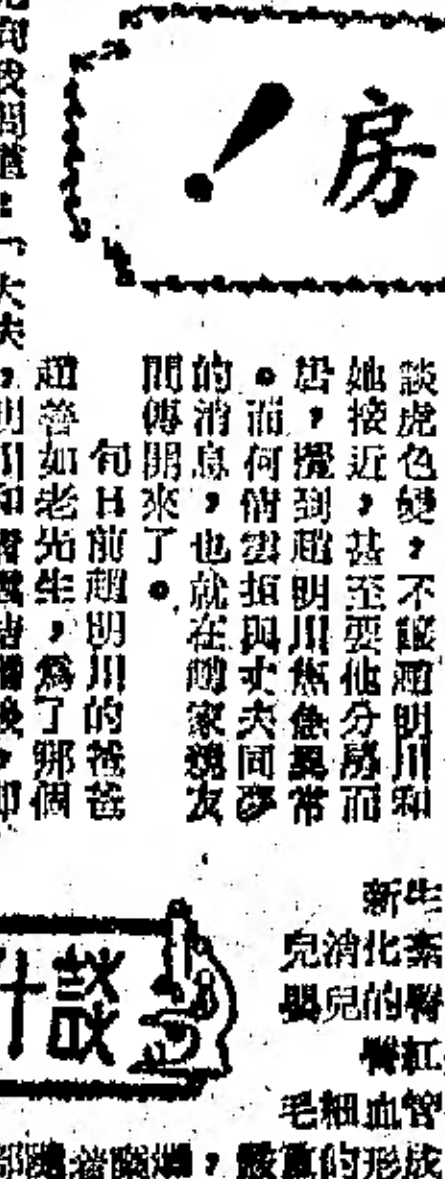 房！
談虎色變，不讓趙明川和
她接近，甚至要他分房而
居，攪到趙明川焦急異常
。而何倩雲拒與丈夫同夢
的消息，也就在兩家親友
間傳開來了。
旬日前趙明川的爸爸
趙善如老先生，爲了哪個
向我問道：「大夫，明川和
什談
生
新
紊
兒消化
嬰兒的臀
臀紅
毛細血管
部隨着
，嚴重的形成